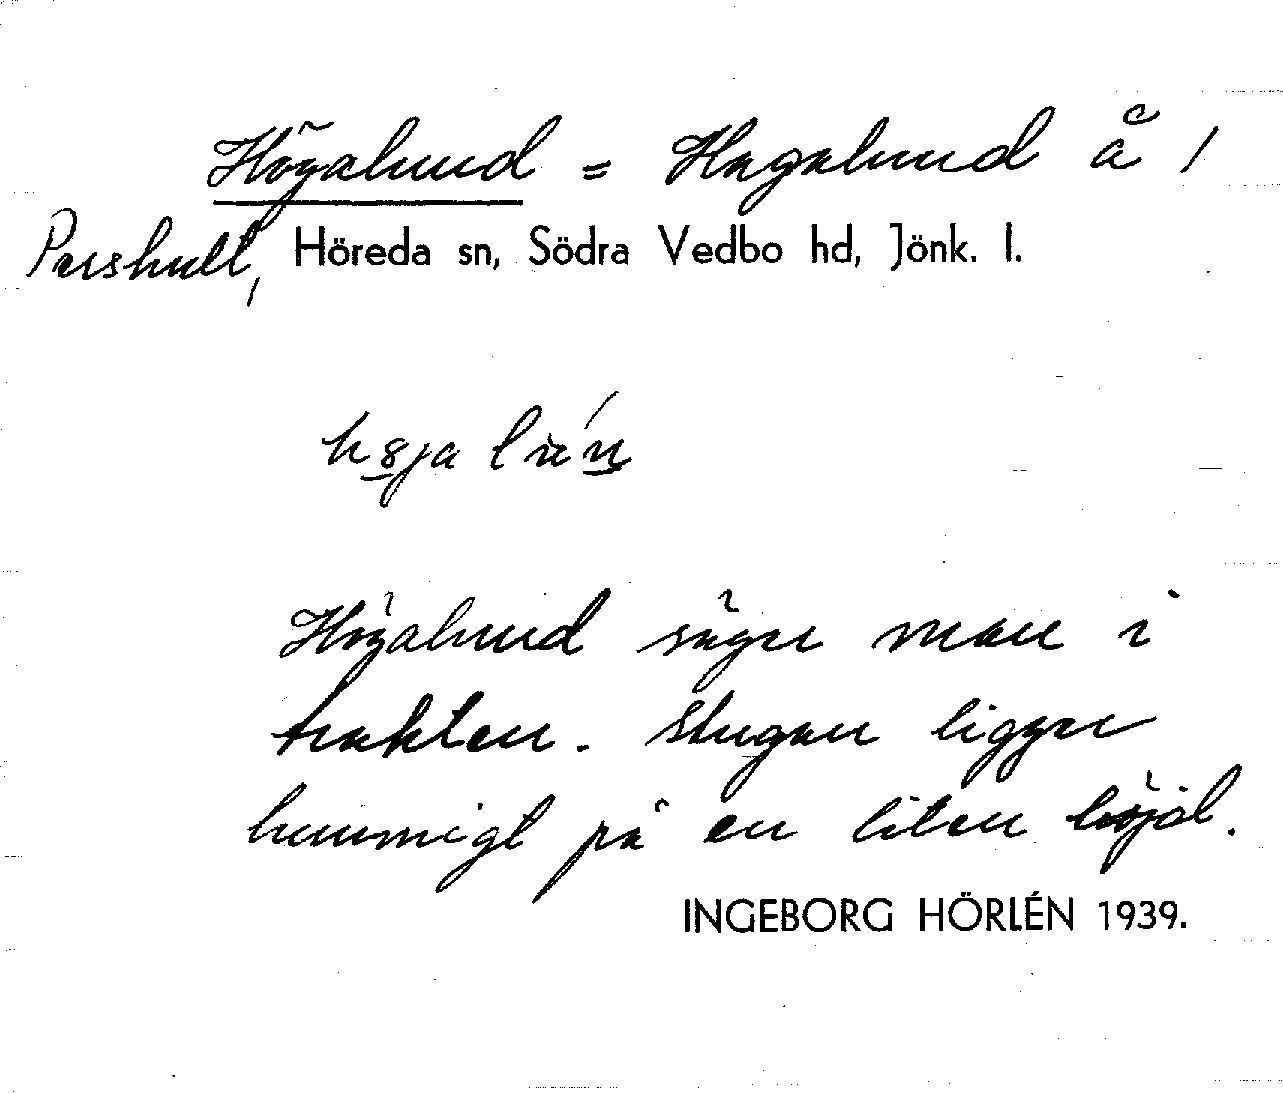 Högalund = Hagalund å 1
Parshult, Höreda sn, Södra Vedbo hd, Jönk. l.
Högalund säger man i
trakten. Stugan ligger
på en liten höjd.
INGEBORG HÖRLÉN 1939.